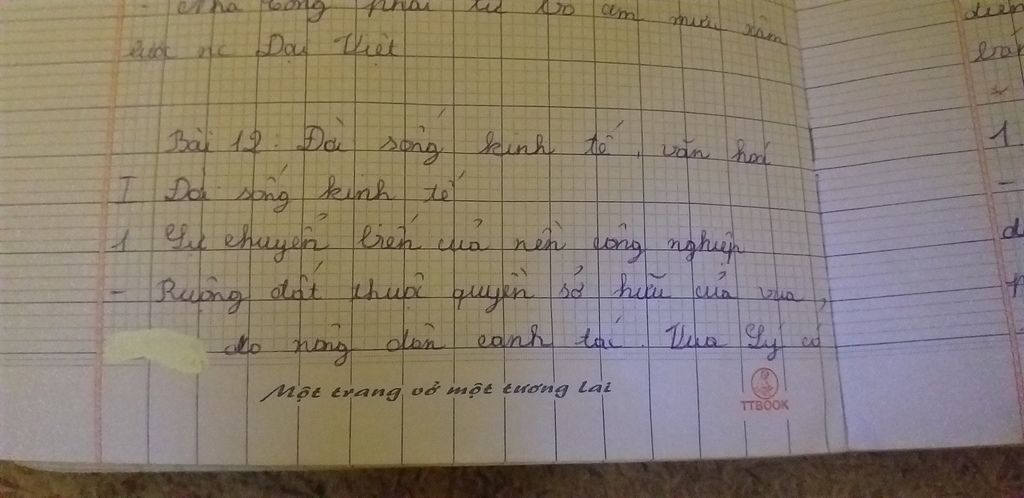 - Nhà Tống phải từ bỏ âm mưu xâm
lược nc Đại Việt
Bài 12: Đời sống kinh tế, văn hoá
I Đời sống kinh tế
1 Sự chuyển biến của nền nông nghiệp
- Ruộng đất thuộc quyền sở hữu của vua,
do nông dân canh tác. Vua Lý có
Một trang vở một tương lai
TTBOOK
1
-